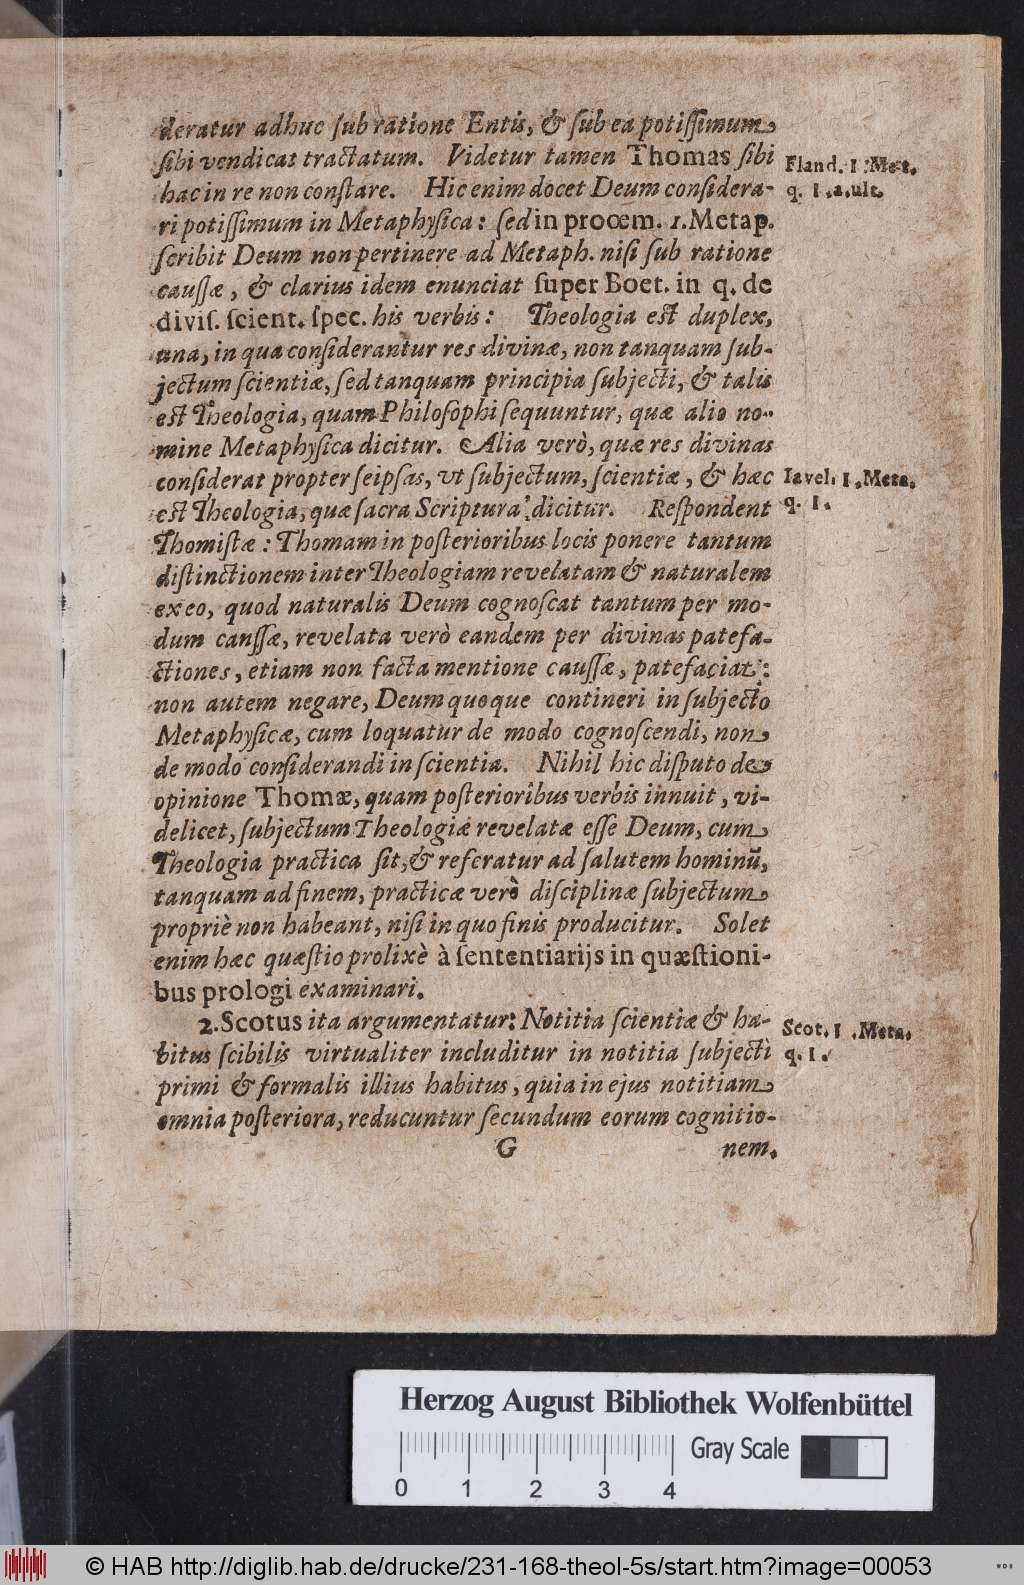 deratur adhuc ſub ratione Entis, & ſub ea potiſſimum
ſibi vendicat tractatum. Videtur tamen Thomas ſibi
hac in re non conſtare. Hic enim docet Deum conſidera-
ri potiſſimum in Metaphyſica: ſed in procem. 1. Metap.
ſcribit Deum non pertinere ad Metaph. niſi ſub ratione
cauſſæ, & clarius idem enunciat ſuper Boet. in q. de
diviſ. ſcient. ſpec. his verbis: Theologia eſt duplex,
una, in qua conſiderantur res divinæ, non tanquam ſub-
jectum ſcientiæ, ſed tanquam principia ſubjecti, & talis
eſt Theologia, quam Philoſophi ſequuntur, quæ alio no-
mine Metaphyſica dicitur. Alia verò, quæ res divinas
conſiderat propter ſeipſas, ut ſubjectum, ſcientiæ, & hæc
eſt Theologia, quæ ſacra Scriptura dicitur. Reſpondent
Thomiſtæ: Thomam in poſterioribus locis ponere tantum
diſtinctionem inter Theologiam revelatam & naturalem
ex eo, quod naturalis Deum cognoſcat tantum per mo-
dum canſſæ, revelata verò eandem per divinas patefa-
ctiones, etiam non facta mentione cauſſæ, patefaciat:
non autem negare, Deum quoque contineri in ſubjecto
Metaphyſicæ, cum loquatur de modo cognoſcendi, non
de modo conſiderandi in ſcientia. Nihil hic diſputo de
opinione Thomæ, quam poſterioribus verbis innuit, vi-
delicet, ſubjectum Theologiæ revelatæ eſſe Deum, cum
Theologia practica ſit, & referatur ad ſalutem hominū,
tanquam ad finem, practicæ verò diſciplinæ ſubjectum
propriè non habeant, niſi in quo finis producitur. Solet
enim hæc quæſtio prolixè à ſententiarijs in quæſtioni-
bus prologi examinari.
2. Scotus ita argumentatur: Notitia ſcientiæ & ha-
bitus ſcibilis virtualiter includitur in notitia ſubjecti
primi & formalis illius habitus, quia in ejus notitiam
omnia poſteriora, reducuntur ſecundum eorum cognitio-
G nem.
Fland. 1. Met.
q. 1. a. ult.
Iavel. 1. Meta.
q. 1.
Scot. 1. Meta.
q. 1.
Herzog August Bibliothek Wolfenbüttel
Gray Scale
0 1 2 3 4
© HAB http://diglib.hab.de/drucke/231-168-theol-5s/start.htm?image=00053